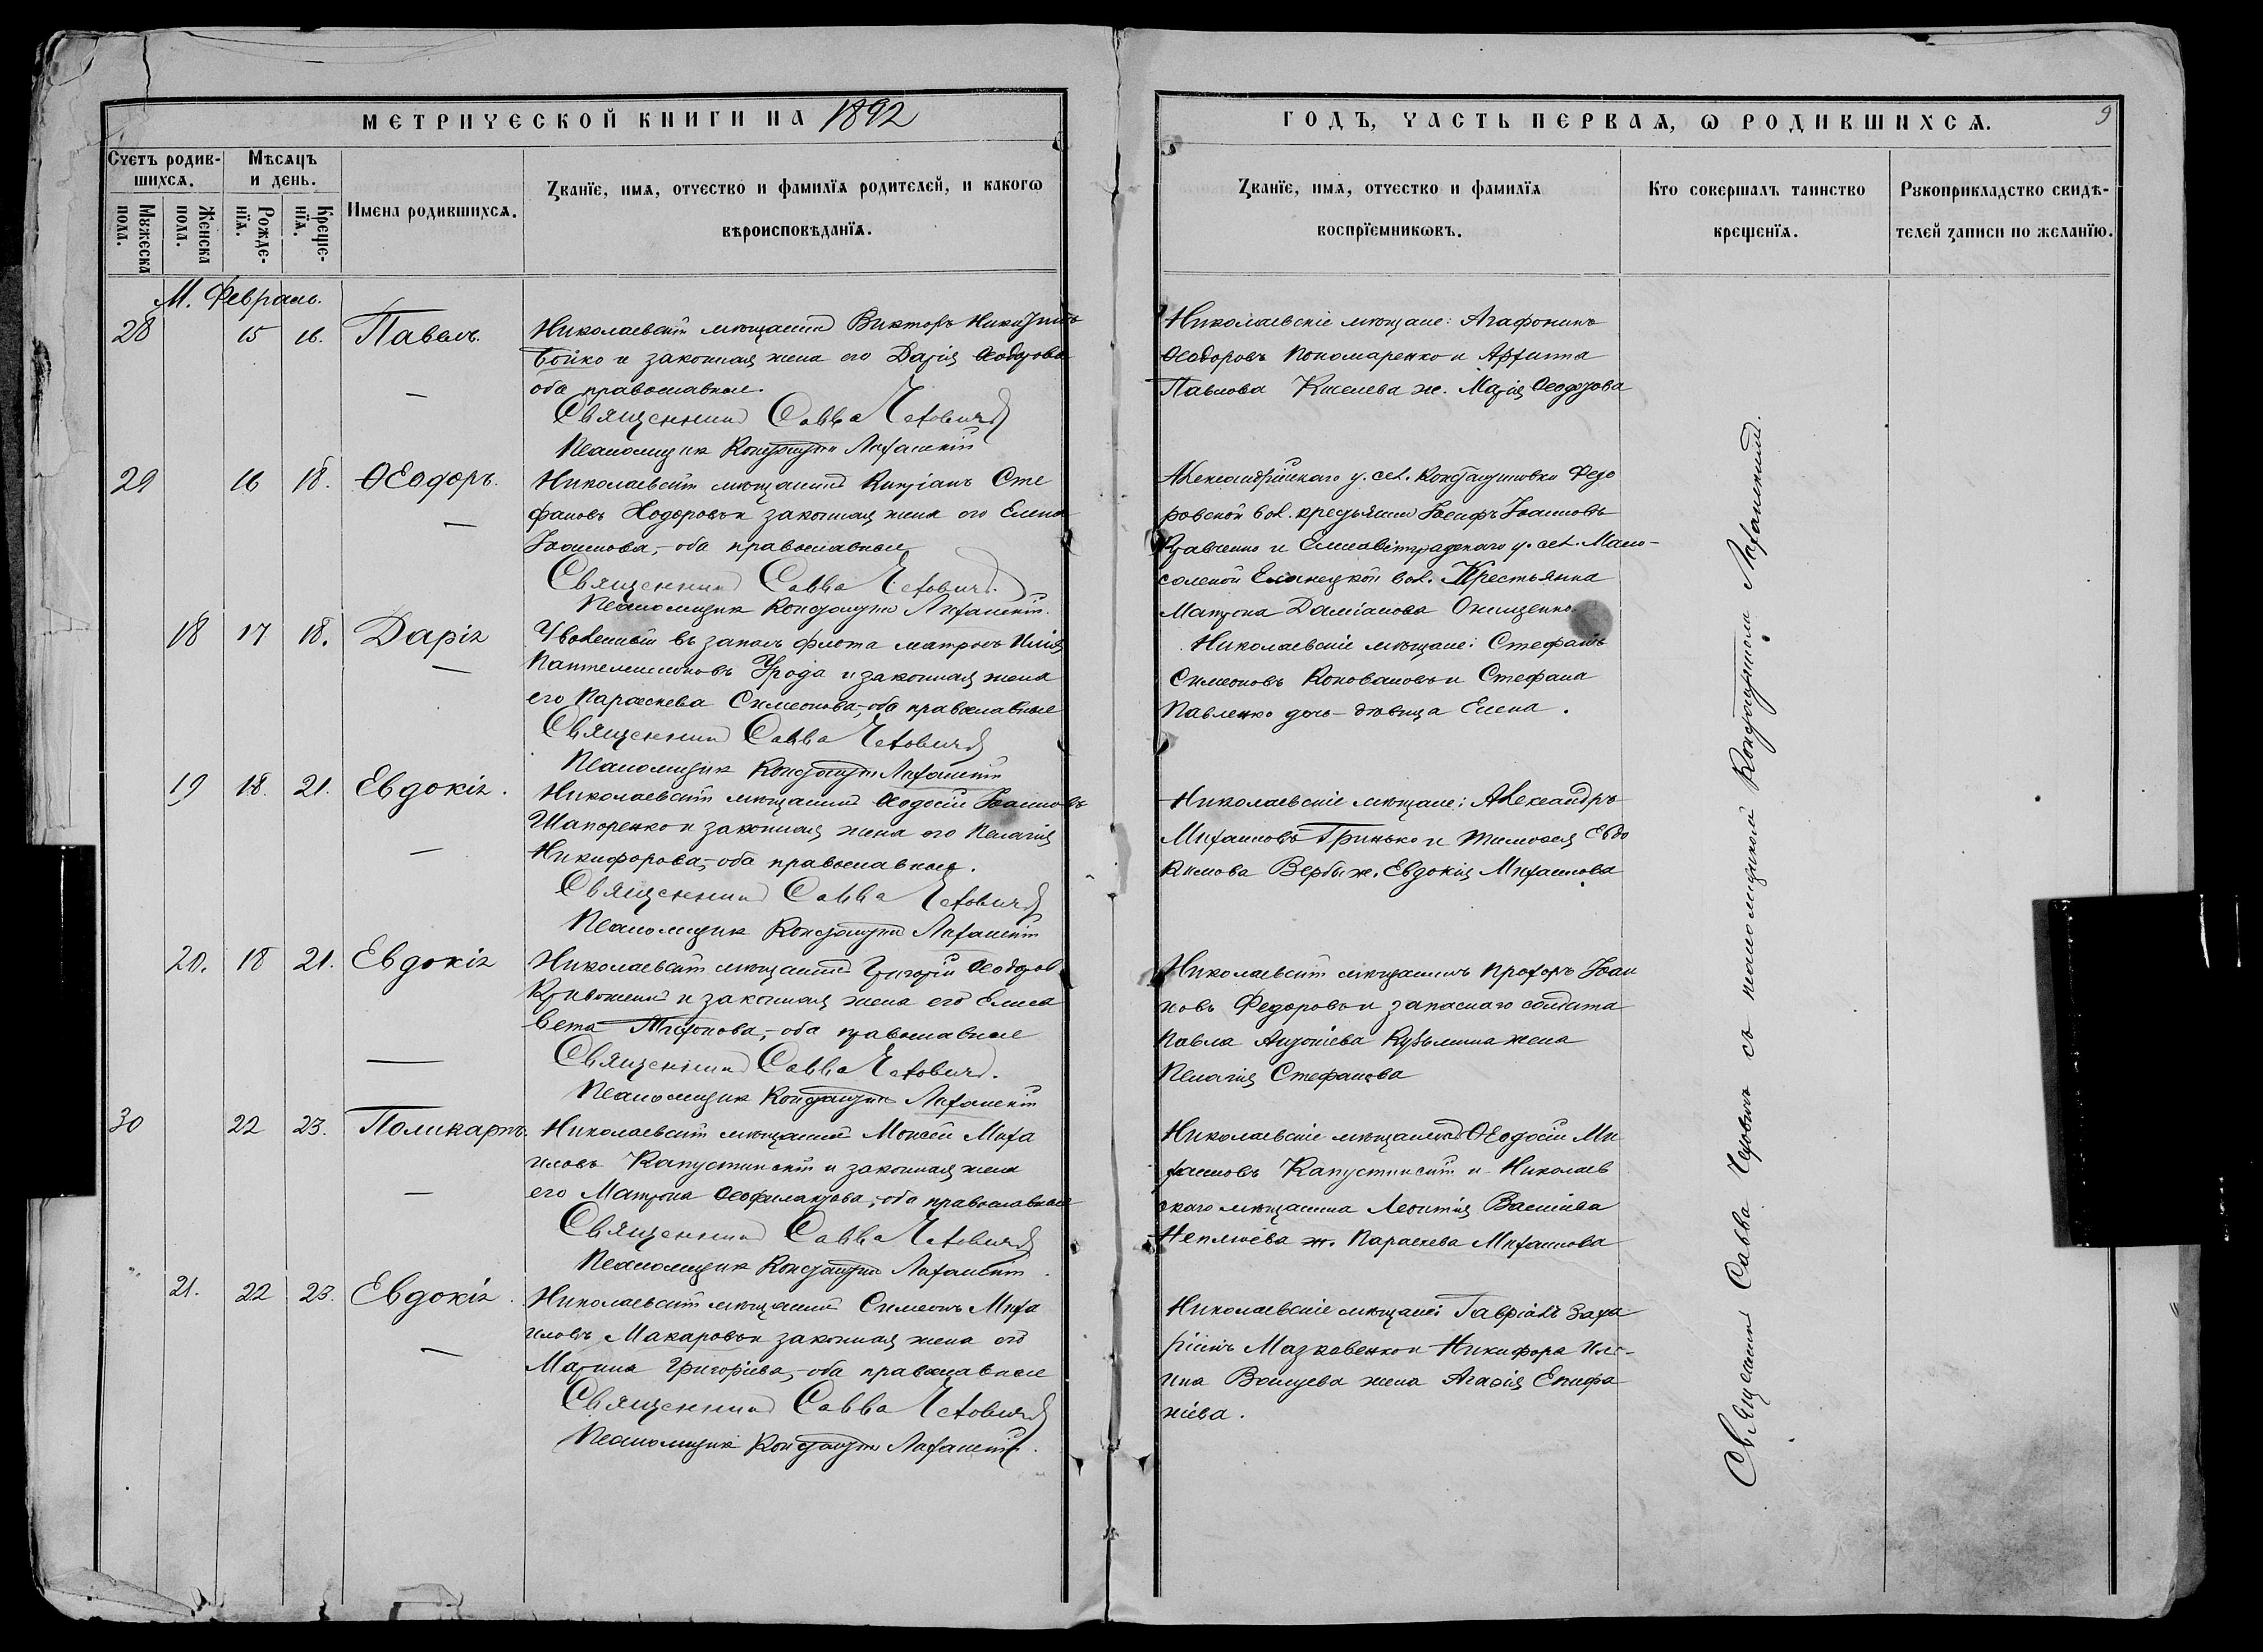 МЕТРИЧЕСКОЙ КНИГИ НА 1892
ГОДЪ, ЧАСТЬ ПЕРВАЯ, Ѡ РОДИВШИХСЯ.
9
Счетъ родив-
шихся.
Мѣсяцъ
и день.
Мꙋжеска
пола.
Женска
пола.
Рожде-
нїя.
Креще-
нїя.
Имена родившихся.
Званїе, имя, отчество и фамилїя родителей, и какогѡ
вѣроисповѣданїя.
Званїе, имя, отчество и фамилїя
воспрїемникѡвъ.
Кто совершалъ таинство
крещенїя.
Рꙋкоприкладство свидѣ-
телей записи по желанїю.
М. Февраль.
28 15 16. Павелъ.
Николаевскій мѣщанинъ Викторъ Никитинъ
Бойко и законная жена его Дарія Ѳеодорова
оба православные.
Священникъ Савва Чехович
Псаломщик Константин Лафанскій
Николаевскіе мѣщане: Агафоникъ
Ѳеодоровъ Пономаренко и
Павлова Киселева ж. Марія Ѳеодорова
29 16 18. Ѳеодоръ.
Николаевскій мѣщанинъ Кипріанъ Сте
фановъ Ходоровъ и законная жена его Елена
Іоаннова,- оба православные
Священникъ Савва Чехович.
Псаломщик Константин Лафанскій.
Александрійскаго у. сел. Константиновки Федо
ровской вол. крестьянин Іосифъ Іоанновъ
Кравченко и Елисаветградскаго у. сел. Мало-
соленой Еланецкой вол. Крестьянка
Матрона Даміанова Онищенко
18 17 18. Дарія
Уволенный въ запасъ флота матросъ Илія
Пантелеимоновъ и законная жена
его Параскева Симеонова,-оба православные
Священникъ Савва Чехович
Псаломщик Константин Лафанскій
Николаевскіе мѣщане: Стефанъ
Симеоновъ Коноваловъ и Стефана
Павленко дочь-дѣвица Елена.
19 18. 21. Евдокія.
Николаевскій мѣщанинъ Ѳеодосій Іоанновъ
Шапоренко и законная жена его Пелагія
Никифорова,-оба православные.
Священникъ Савва Чехович
Псаломщик Константин Лафанскій
Николаевскіе мѣщане: Александръ
Михаиловъ Гринько и Тимоѳея Евдо
кимова Вербы ж. Евдокія Михаилова
20. 18 21. Евдокія
Николаевскій мѣщанинъ Григорій Ѳеодоров
и законная жена его Елиса
вета,-оба православные
Священникъ Савва Чехович.
Псаломщик Константин Лафанскій
Николаевскій мѣщанинъ Прохоръ Іоан
новъ Федоровъ и запаснаго солдата
Павла Антоніева Кузьмина жена
Пелагія Стефанова
30 22 23. Поликарпъ.
Николаевскій мѣщанинъ Моисей Миха
иловъ Капустинскій и законная жена
его Матрона Ѳеофилактова,-оба православные
Священникъ Савва Чехович
Псаломщик Константин Лафанскій
Николаевскіе мѣщанинъ Ѳеодосій Ми
хаиловъ Капустинскій и Николаев
скаго мѣщанина Леонтія Василіева
Неплюева ж. Параскева Михаилова
21. 22 23. Евдокія.
Николаевскій мѣщанинъ Симеонъ Миха
иловъ Макаровъ и законная жена его
Марина Григоріева,-оба православные
Священникъ Савва Чехович
Псаломщик Константин Лафанскій.
Николаевскіе мѣщане: Гавріилъ Заха
ріинъ Мазкавенко и Никифора Иль-
ина жена Агафія Епифа
ніева.
Священникъ Савва Чехович съ псаломщикомъ Константиномъ Лафанскимъ.